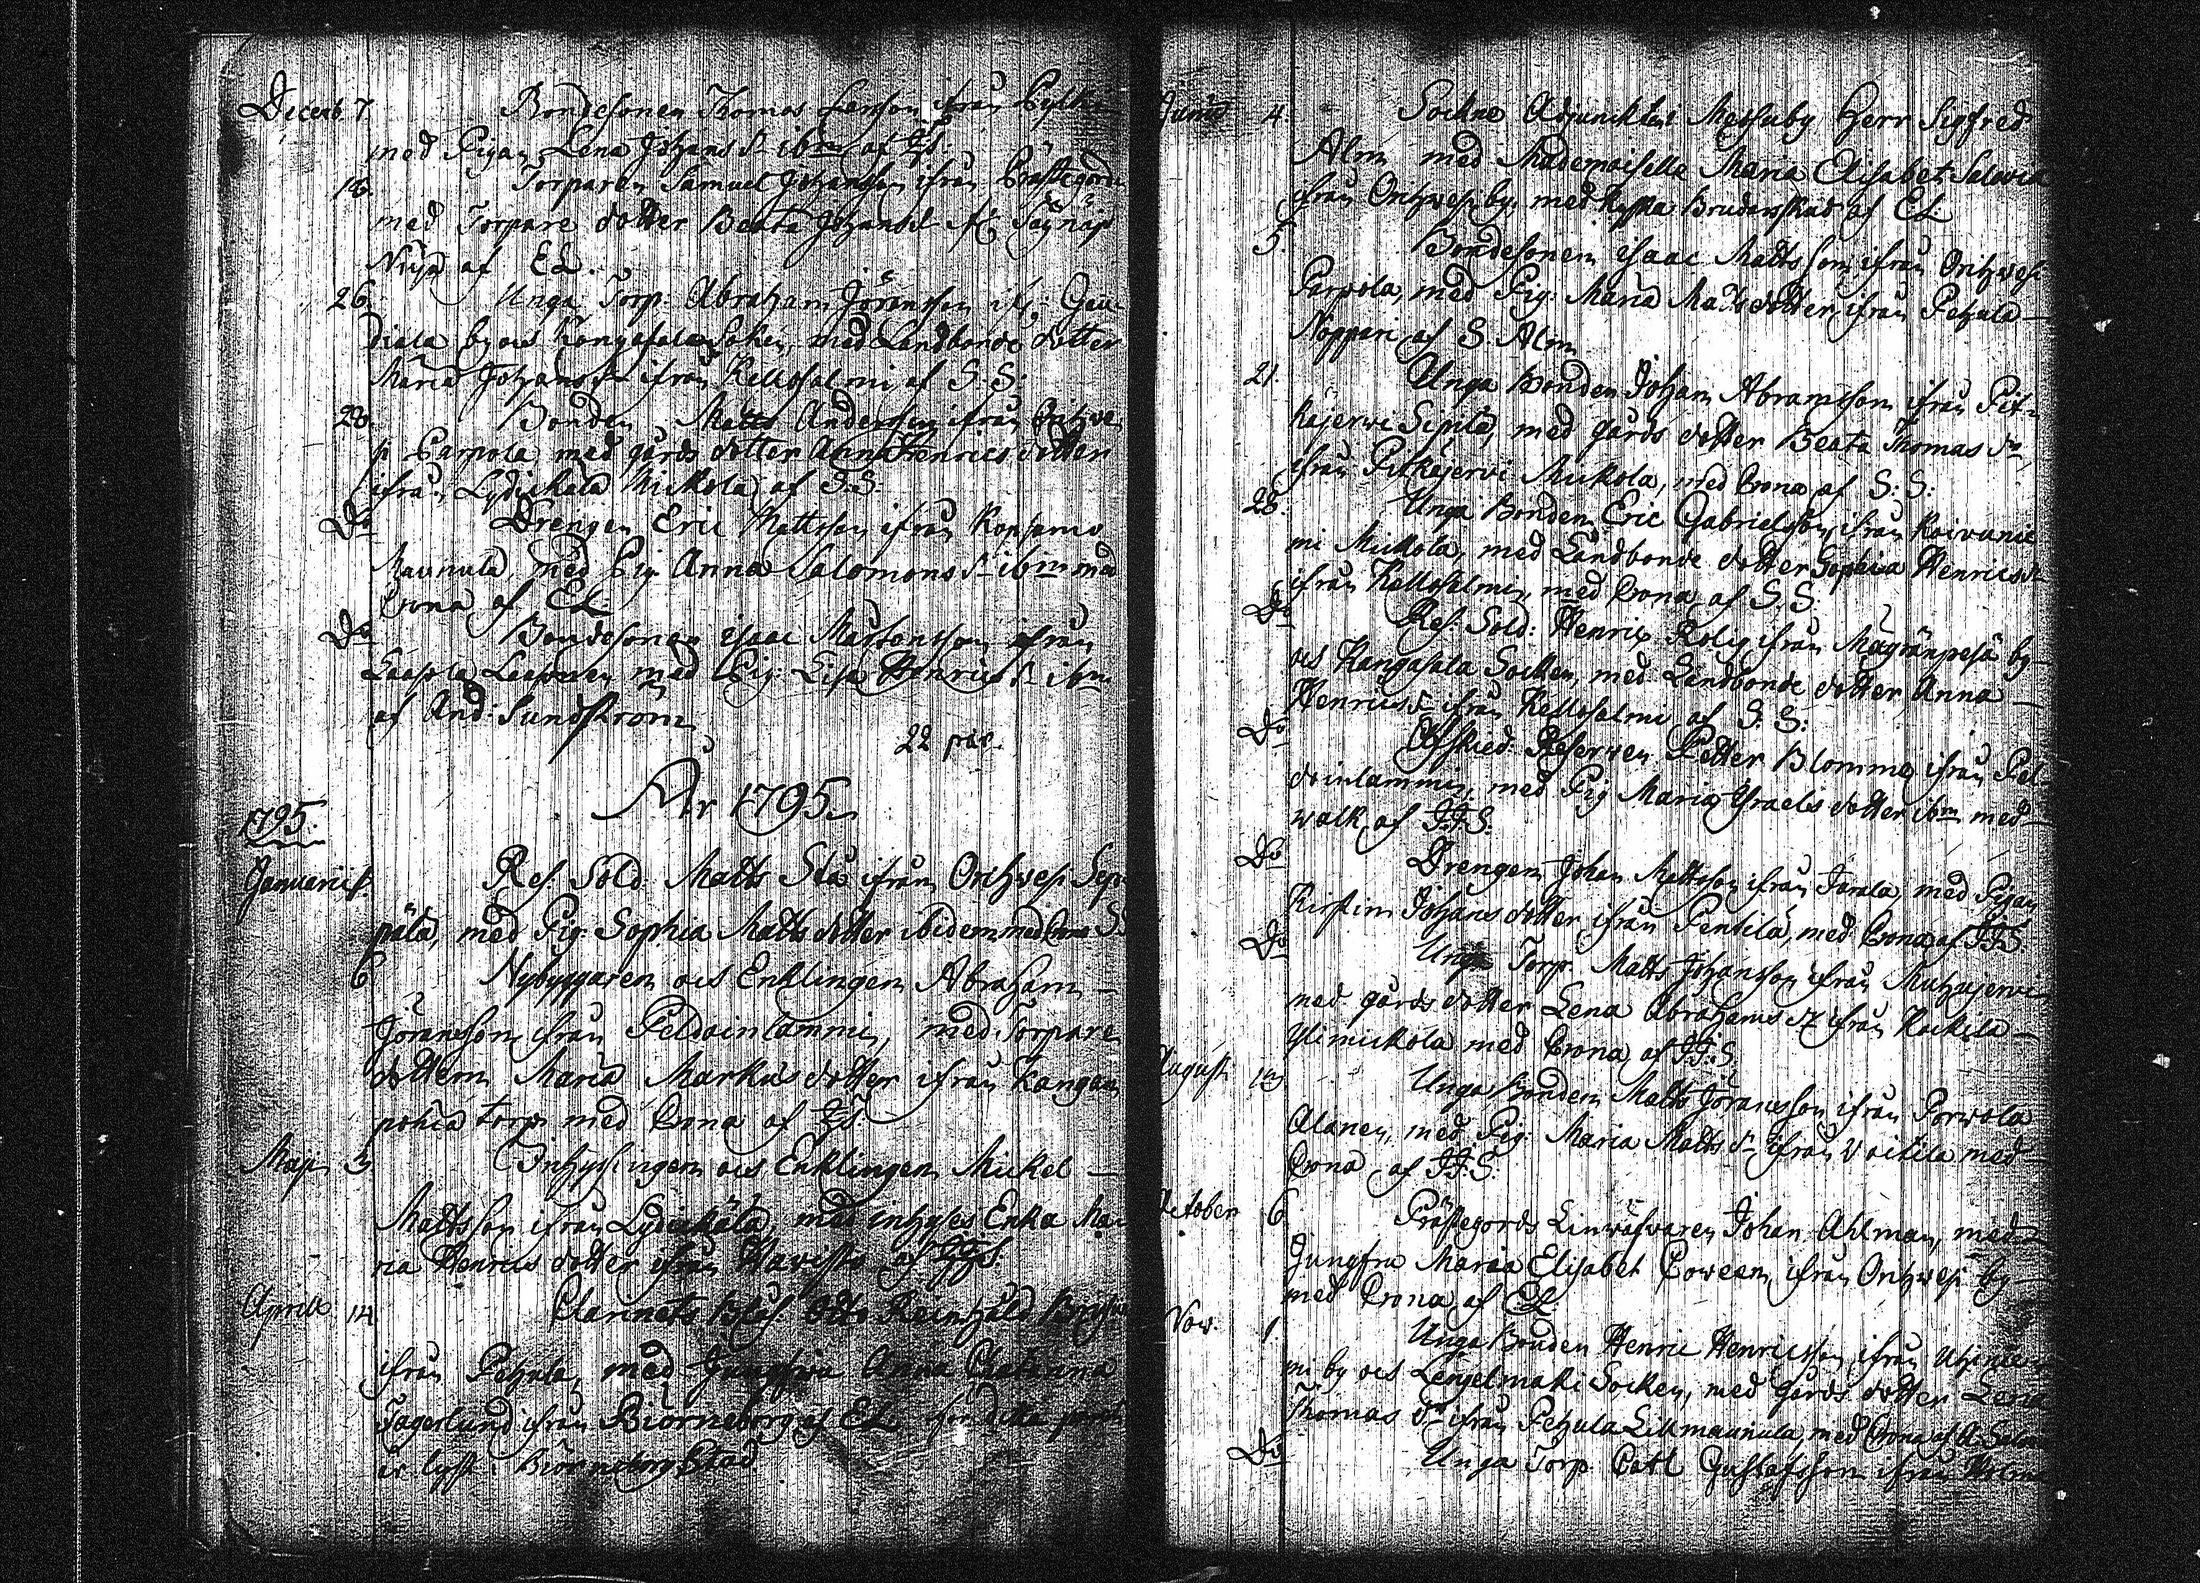 Decemb 7. Bondesonen Thomas Larsson ifrån
med Pigan Lena Johans dr ibm af
18. Torparen Samuel Johansson ifrån Prästegårds
med Torpare dotter Beata Johans dr
af EL.
26. Unga Torp: Abraham Jöransson
diala by ocs Kangasala Soken, med Landbonde dotter
Maria Johans dr ifrån Kellosalmi af S: S:
28. Bonden Matts Andersson ifrån Orihwe
si Parpola med gårds dotter Anna Henrics dotter
ifrån Lydickälä Mickola af S: S:
Do Drengen Eric Mattsson ifrån Koppsamo
Maunula, med Pig: Anna Salomons dr ibm med
Crona af EL.
Do Bondesonen Isaac Mårtensson ifrån
med Pig: Lisa Henrics dr ibm
af And: Sundström
22 par.
År 1795.
1795.
Januarii 1. Res: Sold: Matts Stå ifrån Orihwesi Sep-
pälä, med Pig: Sophia Matts dotter ibidem med Crona S:
6 Nybyggaren ocs Enklingen Abraham
Jöransson ifrån Peldoinlammi, med Torpare
dottern Maria Markus dotter ifrån Kangan
pohia torp med Crona af
Maji 3 Inhysingen ocs Enklingen Mickel
Mattsson ifrån Lydickälä, med inhyses Enka Ma-
ria Henrics dotter ifrån Hawisto af
Aprill 14 Clarinets Blås: Otto Reinhold
ifrån Pehula, med Jungfru Anna Catharina
Fagerlund ifrån Biörneborg af EL. för detta
är lyst i Biörneborg Stad
Junii 4. Sockne Adjunckten i Messuby Herr Sigfred
Alm med Mademoiselle Maria Elisabet
ifrån Orihwesi by, med Bruderskrud af EL.
5. Bondesonen Isaac Mattsson ifrån Orihwesi
Parpola, med Pig: Maria Matts dotter ifrån Pehula
Noppari af S. Alm
21. Unga Bonden Johan Abramsson ifrån Pit-
käjerwi Sipilä, med gårds dotter Beata Thomas dr
ifrån Pitkäjerwi Mickola, med Crona af S: S:
28. Unga Bonden Eric Gabrielsson ifrån Koivunie
mi Mickola, med Landbonde dotter Sophia Henrics dr
ifrån Kellosalmi, med Crona af S: S:
Do Res: Sold: Henric Rolig ifrån by
ocs Kangasala Socken, med Landbonde dotter Anna
Henrics dr ifrån Kellosalmi af S: S:
Do Afsked: Reserwen Petter Blomme ifrån Pel-
doinlammi, med Pig Maria Israels dotter ibm med
walk af J:F:S:
Do Drengen Johan Mattsson ifrån, med Pigan
Kirstin Johans dotter ifrån Pentilä, med Crona af J:F:S:
Do Unga Torp. Matts Johansson ifrån Muhajerwi
med gårds dotter Lena Abrahams dr ifrån Kockila
Ylimickola med Crona af J:F:S:
Augusti 13 Unga Bonden Matts Jöransson ifrån Porwola
Alanen, med Pig: Maria Matts dr ifrån Voitila med
Crona af J:F:S:
October 6 Prästegårds Linwäfvaren Johan Ahlman, med
Jungfru Maria Elisabet ifrån Orihwesi by
med Crona af EL.
Nov. 1. Unga Bonden Henric Henricsson ifrån
mi by ocs Lengelmäki Socken, med gårds dotter Lena
Thomas dr ifrån Pehula Lillmaunula, med Crona af
Do Unga Torp. Carl Gustafsson ifrån